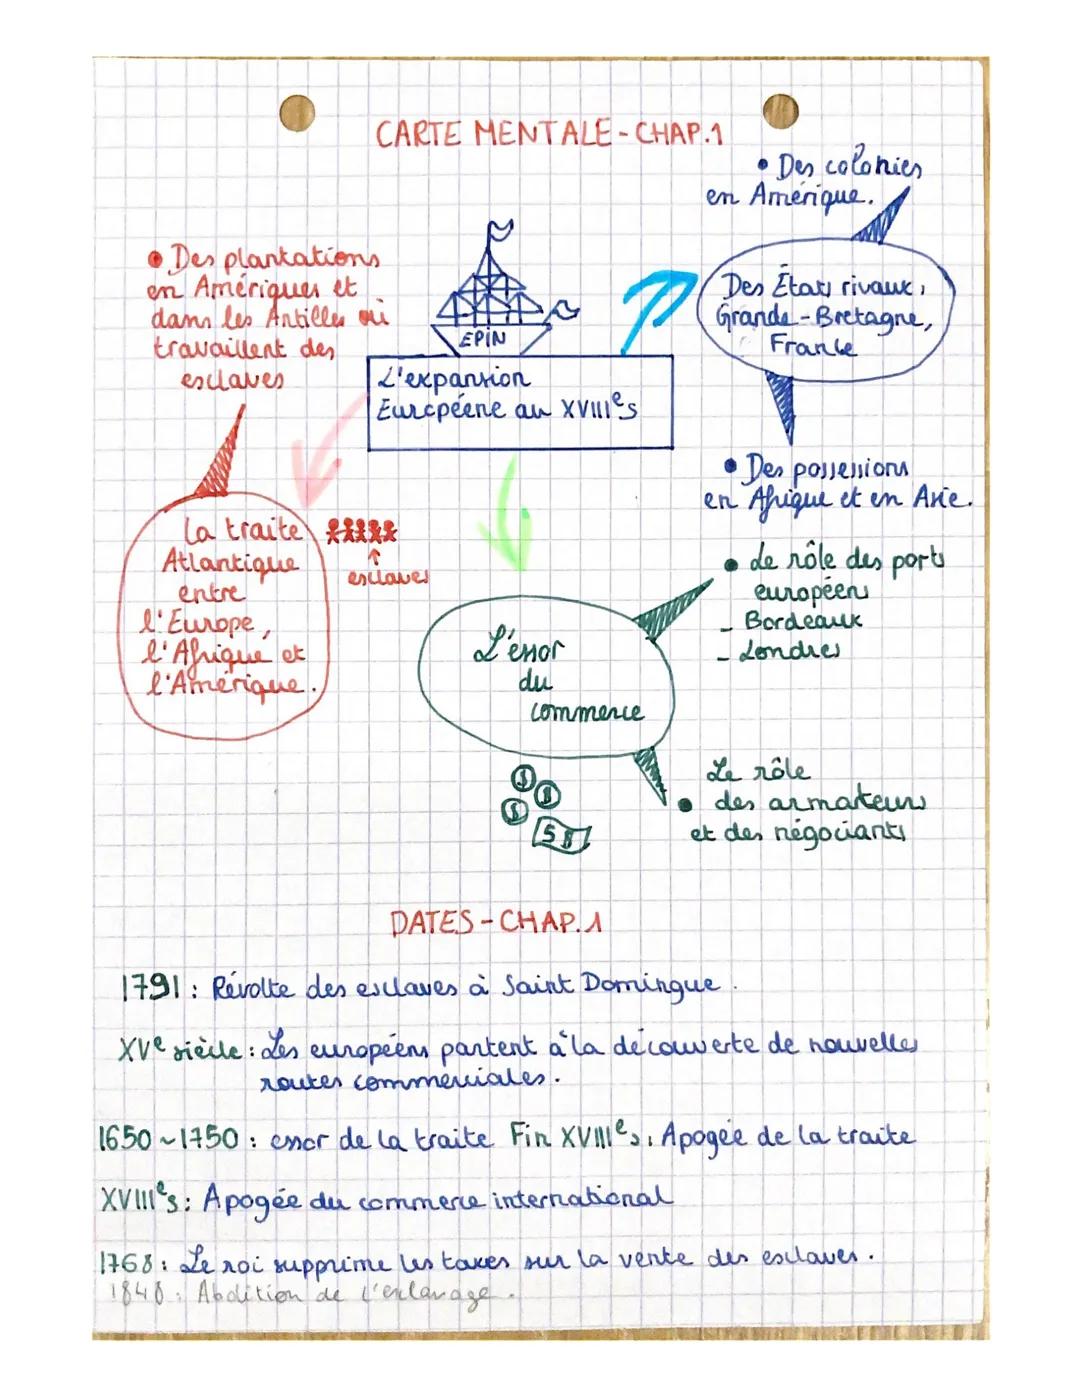 CARTE MENTALE - CHAP.1
• Des colonies
en Amérique.
• Des plantations
en Amériques et
dans les Antilles où
travaillent des
esclaves
EPIN
Des États rivaux,
Grande-Bretagne,
France
L'expansion
Européene au XVIIIᵉs
• Des possessions
en Afrique et en Asie.
La traite
Atlantique
entre
l'Europe,
l'Afrique et
l'Amérique.
↑
esclaves
• Le rôle des ports
européens
- Bordeaux
- Londres
L'éssor
du
commerce
Le rôle
• des armateurs
et des négociants
DATES - CHAP.1
1791 : Révolte des esclaves à Saint Domingue.
XVᵉ siècle : Les européens partent à la découverte de nouvelles
routes commerciales.
1650 ~ 1750 : essor de la traite Fin XVIIIᵉs : Apogée de la traite
XVIIIᵉs : Apogée du commerce international
1768 : Le roi supprime les taxes sur la vente des esclaves.
1848 : Abolition de l'esclavage.